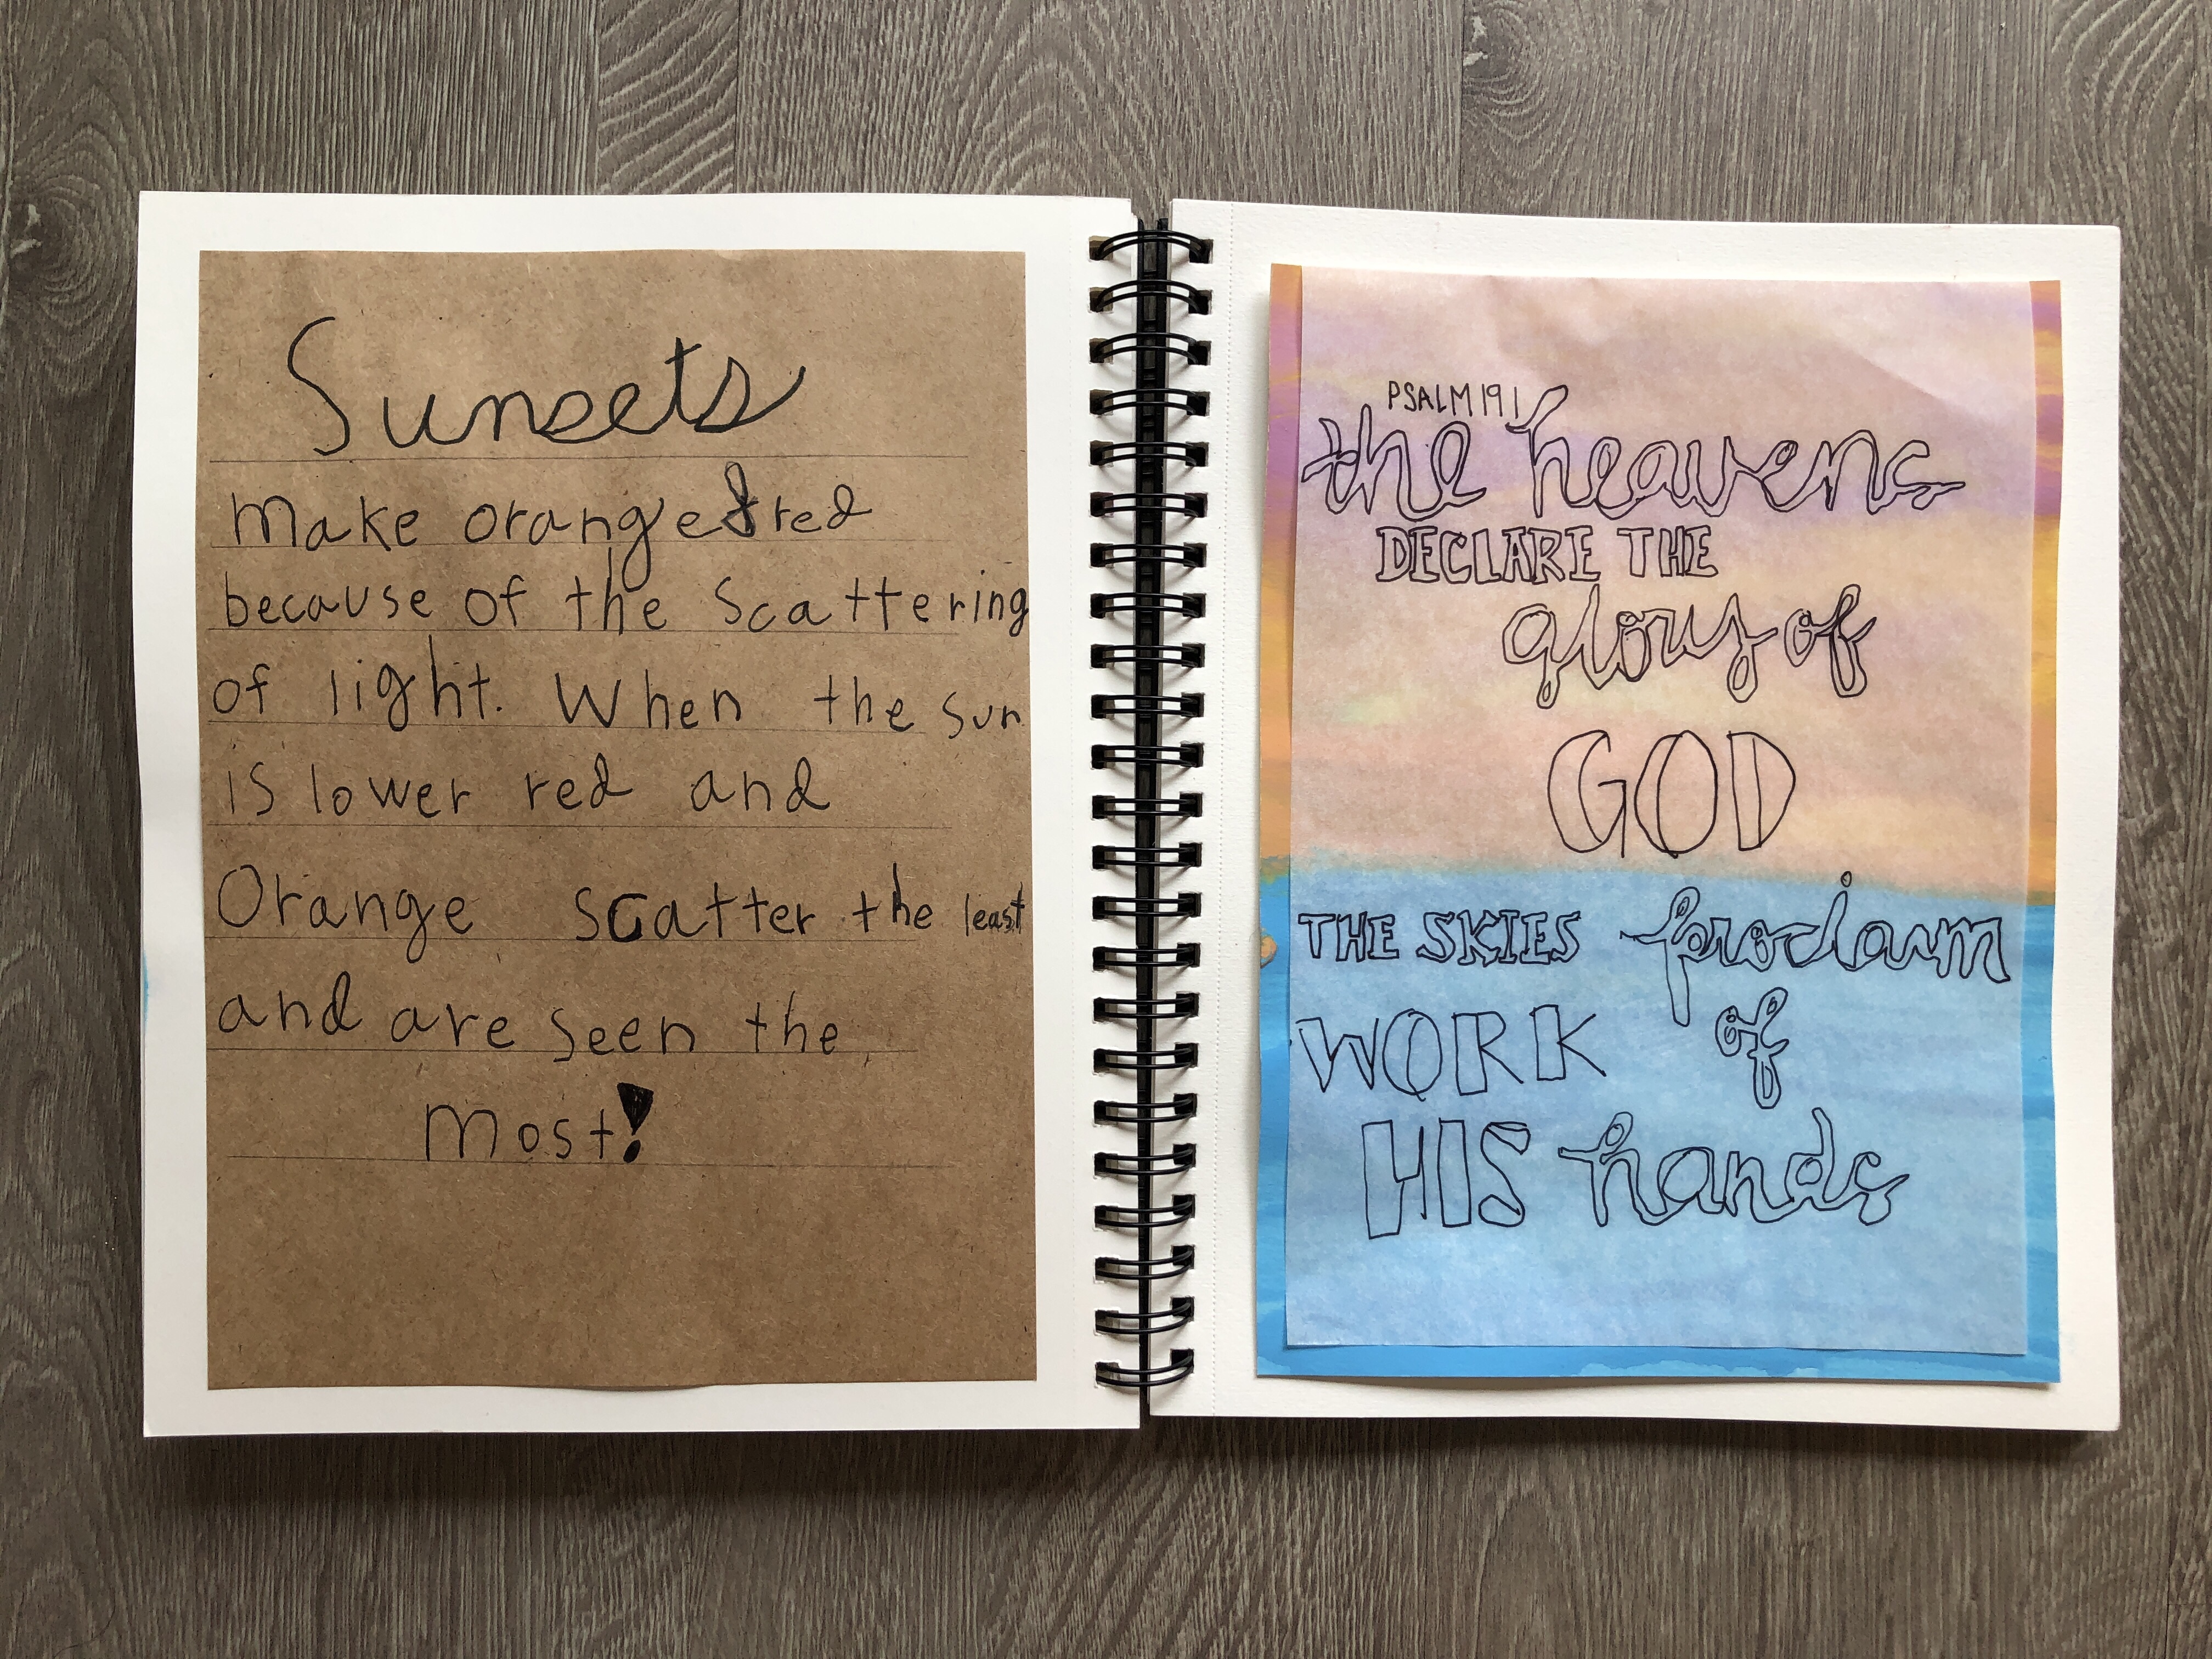 Sunsets
Make orange & red
because of the scattering
of light. When the sun
is lower red and
Orange scatter the least
and are seen the
Most!
PSALM 19 1
the heavens
DECLARE THE
glory of
GOD
THE SKIES proclaim
WORK of
HIS hands